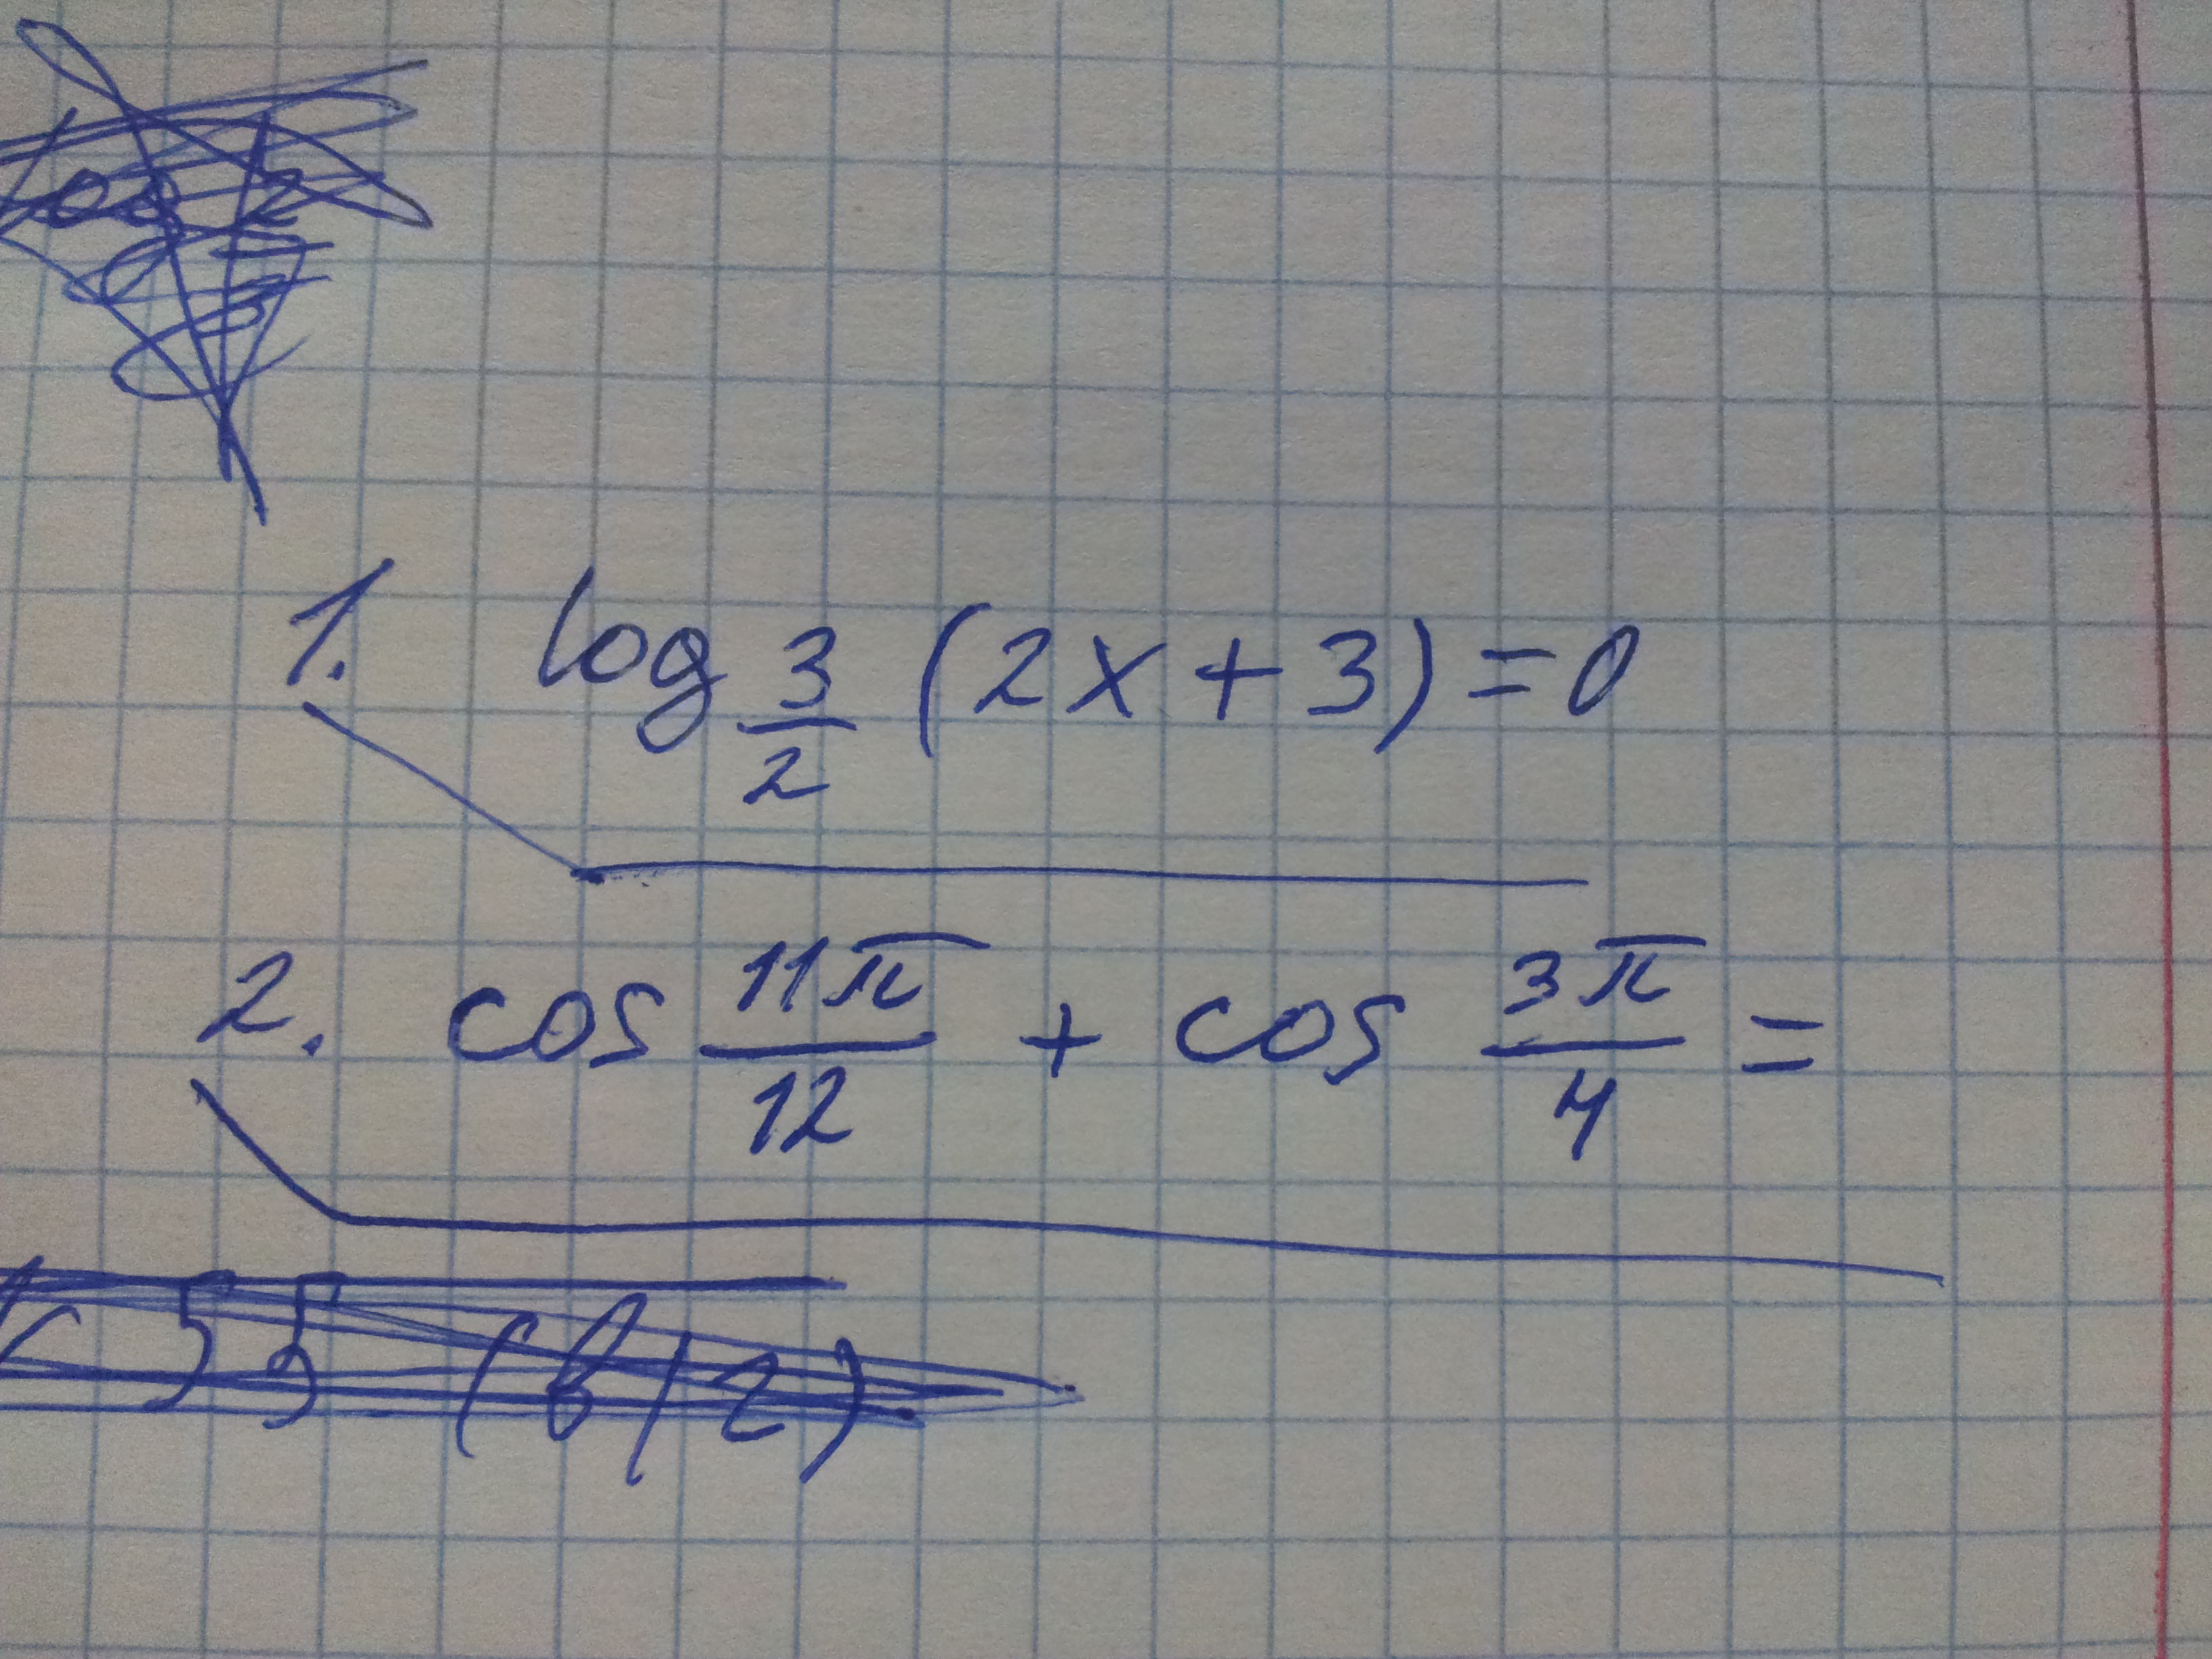 1. log 3/2 (2x+3)=0
2. cos 11π/12 + cos 3π/4 =